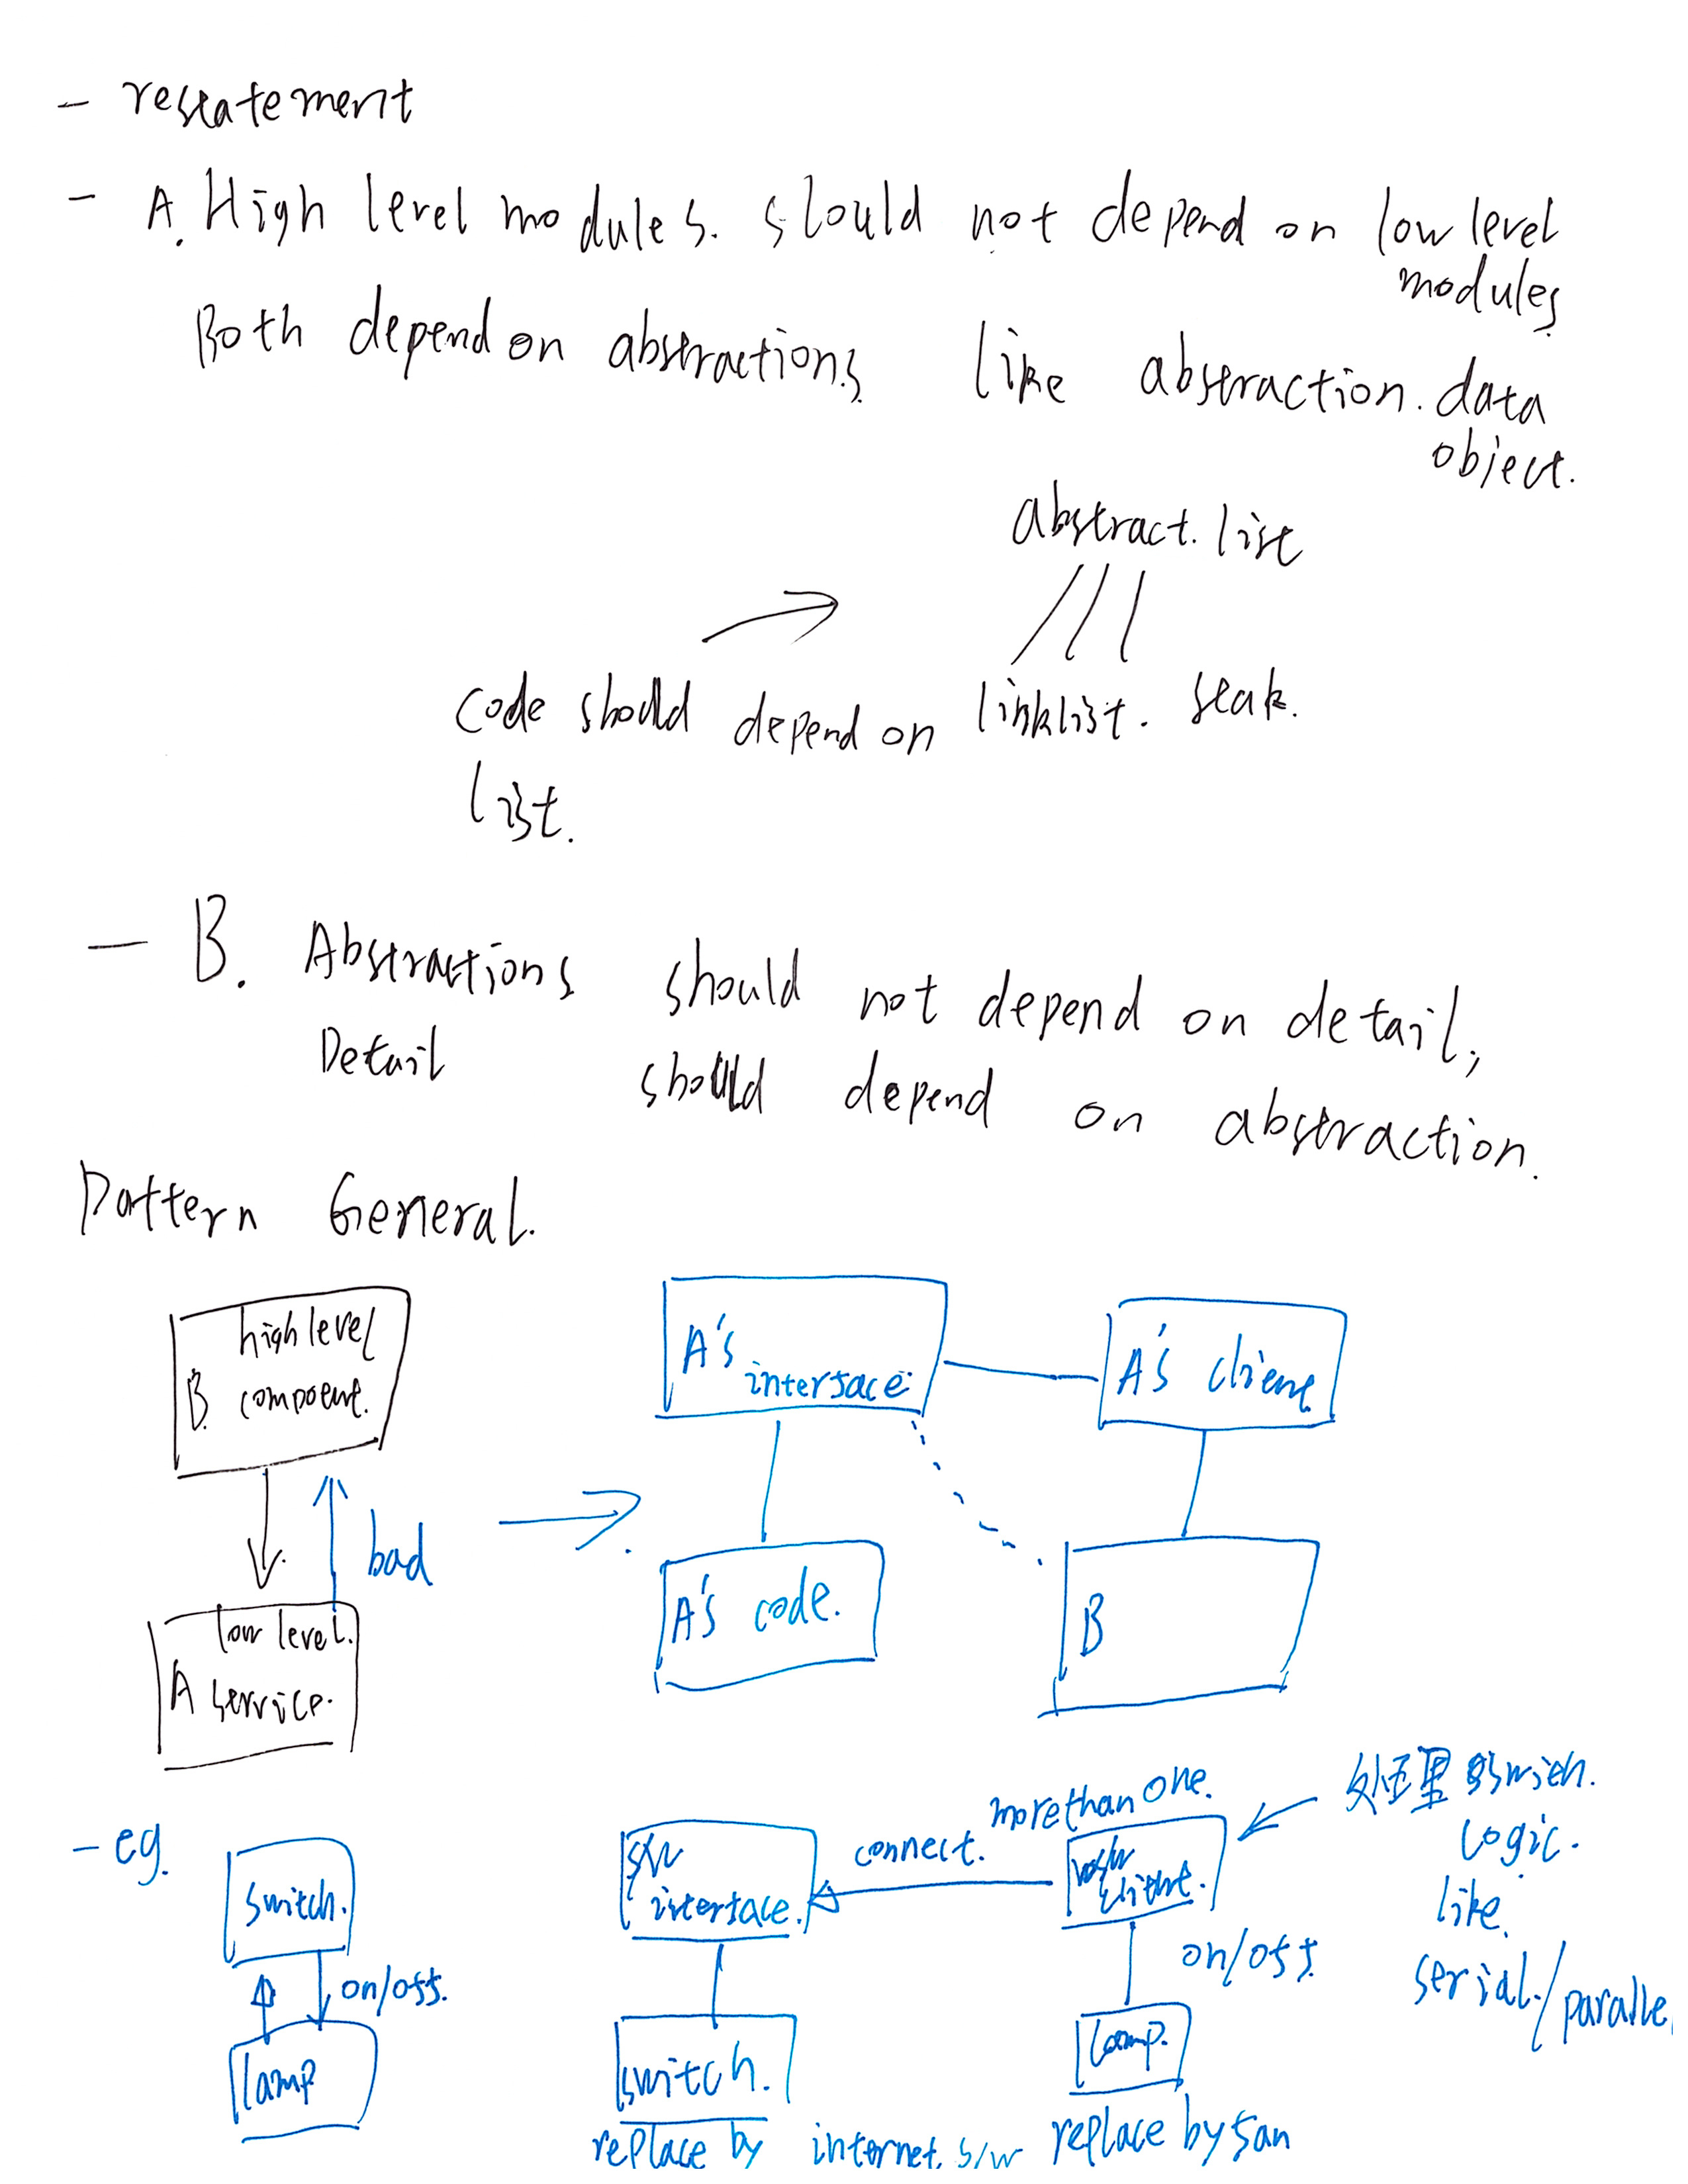 - restatement
- A. High level modules. should not depend on low level
modules
Both depend on abstractions
like abstraction. data
object.
abstract. list
code should depend on
list.
linklist. stak.
- B. Abstractions should not depend on detail,
Detail should depend on abstraction.
Pattern General.
high level
B. component.
bad
low level.
A service.
A's
interface
A's client
A's code.
B
- eg.
switch.
on/off.
lamp
s/w
interface.
connect.
more than one.
client.
处理 switch.
Logic.
like
serial./paralle
on/off.
switch.
lamp.
replace by internet s/w
replace by fan